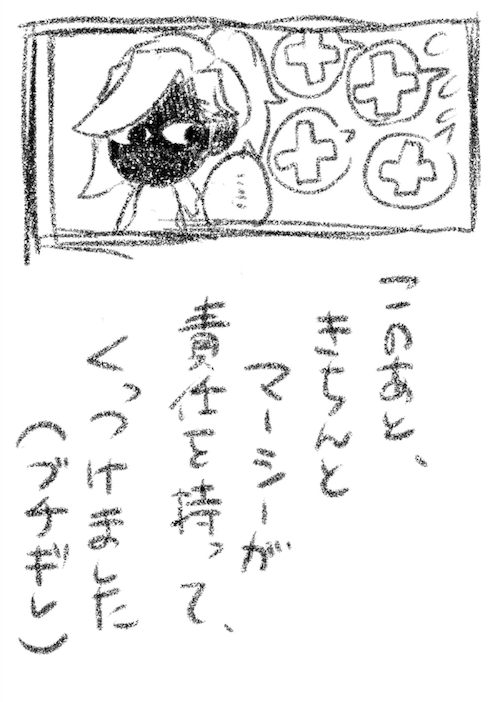 このあと、
きちんと
マーシーが
責任を持って、
くっつけました
(ブチギレ)